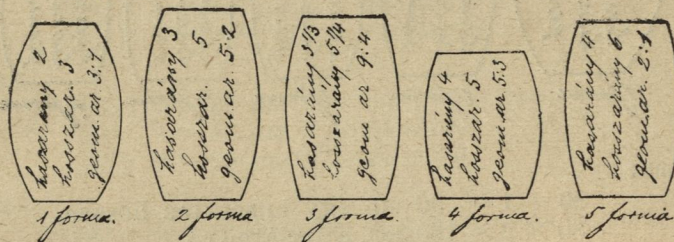 hasarány 2
hosszár. 3
geom. ar. 3:1
1 forma.
hasarány 3
hosszár. 5
geom ar. 5:2
2 forma
hasarány 3 1/3
hosszarány 5 1/4
geom ar 9:4
3 forma.
hasarány 4
hosszár. 5
geom. ar. 5:3
4 forma.
hasarány 4
hosszarány 6
geom. ar. 2:1
5 forma